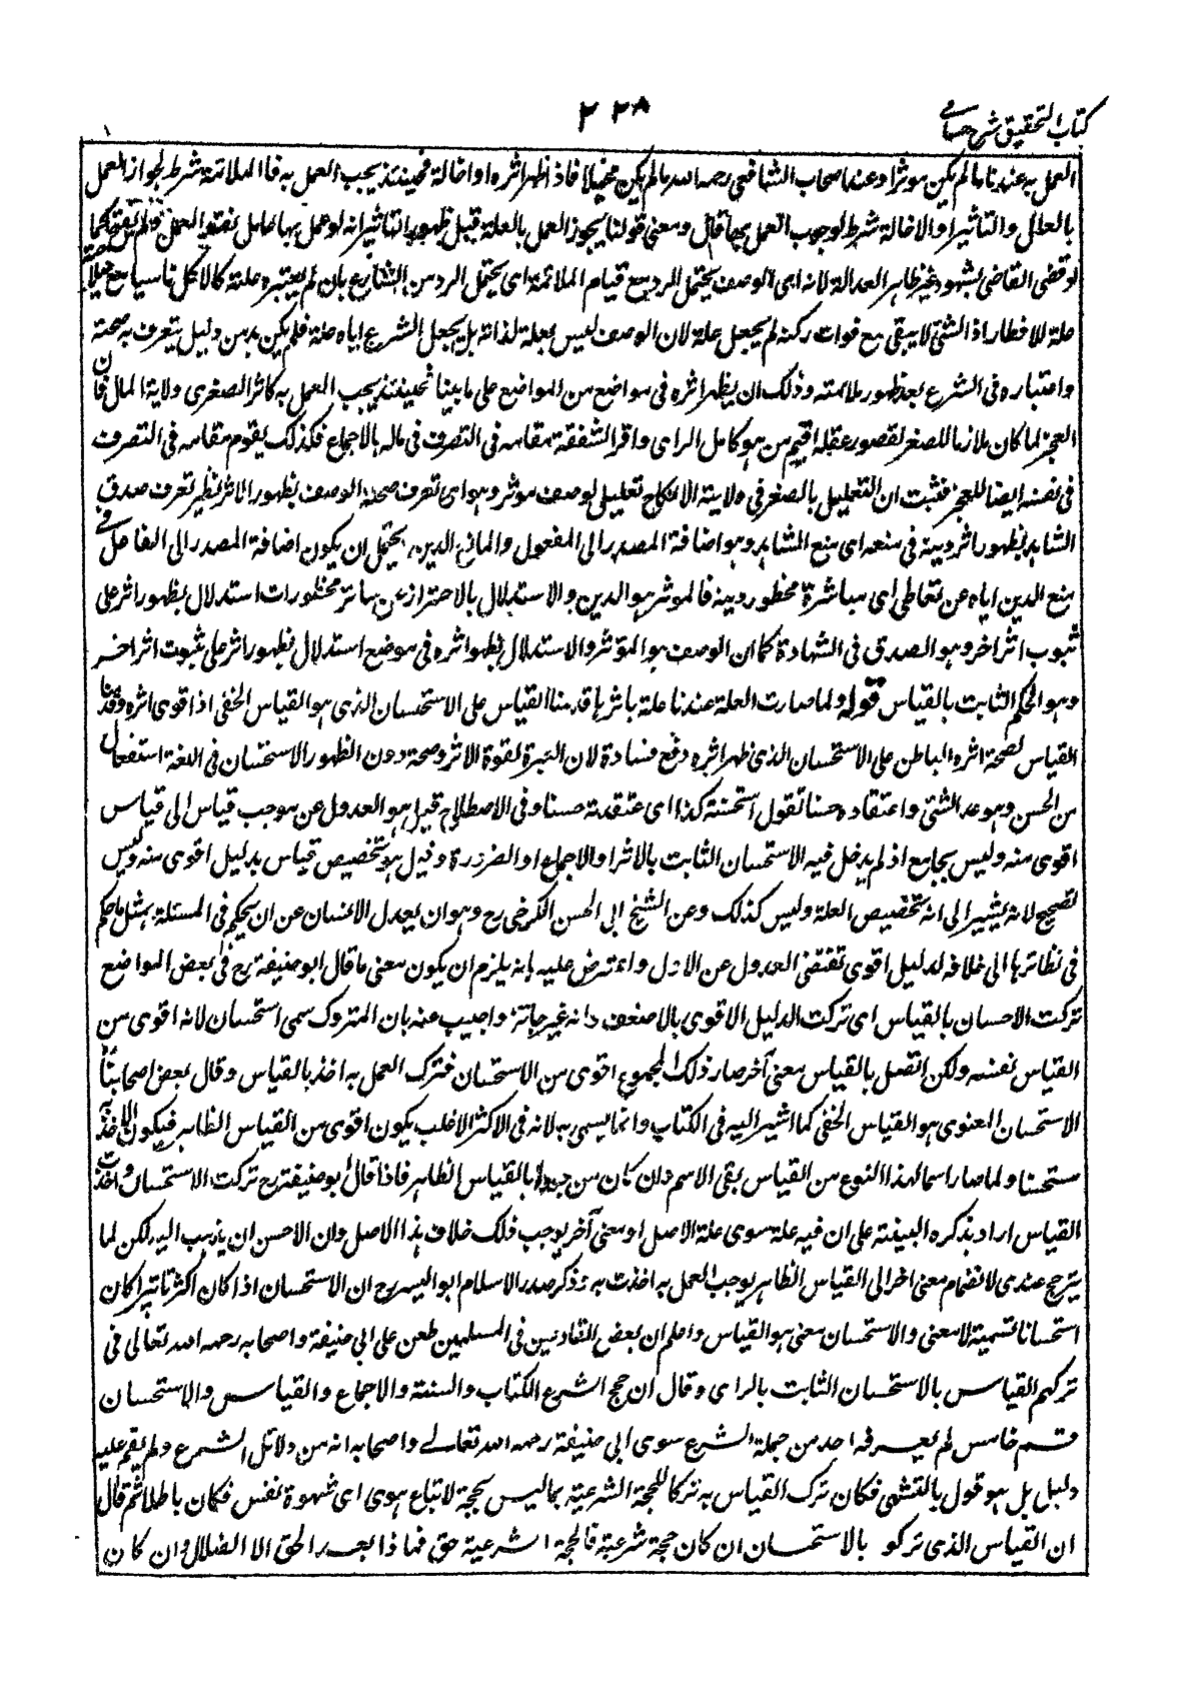 كتاب التحقيق شرح حسامى
٢٢٨
العمل به عندنا ما لم يكن موثرا وعند اصحاب الشافعى رحمه الله ما لم يكن مخيلا فاذا ظهر اثره او اخالة فحينئذ يجب العمل به فالملائمة شرط لجواز العمل
بالعلل والتاثير او الاخالة شرط لوجوب العمل بها قال ومعنى قولنا يجوز العمل بالعلة قبل ظهور التاثير انه لو عمل بها عامل نفذ العمل ولم يفسق كما
لو قضى القاضى بشهود غير ظاهر العدالة لانه اى الوصف يحتمل الرد مع قيام الملائمة اى يحتمل الرد من الشارع بان لم يعتبره علة كالاكل ناسيا
علة للافطار اذ الشئ لا يبقى مع فوات ركنه لم يجعل علة لان الوصف ليس بعلة لذاته بل يجعل الشرع اياه علة فلم يكن بد من دليل يتعرف به صحته
واعتباره فى الشرع بعد ظهور ملائمته وذلك ان يظهر اثره فى موضع من المواضع على ما بينا فحينئذ يجب العمل به كاثر الصغر فى ولاية المال فان
العجز لما كان ملازما للصغر لقصور عقله اقيم من هو كامل الراى وافر الشفقة مقامه فى التصرف فى ماله بالاجماع فكذلك يقوم مقامه فى التصرف
فى نفسه ايضا للعجز فثبت ان التعليل بالصغر فى ولاية الانكاح تعليل لوصف موثر وهو اى تعرف صحة الوصف بظهور الاثر نظير تعرف صدق
الشاهد بظهور اثر دينه فى منعه اى منع الشاهد وهو اضافة المصدر الى المفعول والمانع الدين ويحتمل ان يكون اضافة المصدر الى الفاعل
منع الدين اياه عن تعاطى اى مباشرة محظور دينه فالموثر هو الدين والاستدلال بالاحتراز عن سائر محظورات استدلال بظهور اثر على
ثبوت اثر اخر وهو الصدق فى الشهادة كما ان الوصف هو الموثر والاستدلال بظهور اثره فى موضع استدلال بظهور اثر على ثبوت اثر اخر
وهو الحكم الثابت بالقياس قوله ولما صارت العلة عندنا علة باثرها قدمنا القياس على الاستحسان الذى هو القياس الخفى اذا قوى اثره وقدمنا
القياس لصحة اثره الباطن على الاستحسان الذى ظهر اثره وخفى فساده لان العبرة لقوة الاثر وصحته دون الظهور الاستحسان فى اللغة استفعال
من الحسن وهو عد الشئ واعتقاده حسنا تقول استحسنته كذا اى اعتقدته حسنا وفى الاصطلاح قيل هو العدول عن موجب قياس الى قياس
اقوى منه وليس بجامع اذ لم يدخل فيه الاستحسان الثابت بالاثر او الاجماع او الضرورة وقيل هو تخصيص قياس بدليل اقوى منه وليس
لصحيح لانه يشير الى انه تخصيص العلة وليس كذلك وعن الشيخ ابى الحسن الكرخى رح وهو ان يعدل الانسان عن ان يحكم فى المسئلة بمثل ما حكم
فى نظائرها الى خلافه لدليل اقوى تقتضى العدول عن الاول واعترض عليه بانه يلزم ان يكون معنى ما قال ابو حنيفة رح فى بعض المواضع
تركت الاحسان بالقياس اى تركت الدليل الاقوى بالاضعف وانه غير جائز واجيب عنه بان المتروك سمى استحسان لانه اقوى من
القياس نفسه ولكن اتصل بالقياس معنى آخر صار ذلك المجموع اقوى من الاستحسان فترك العمل به اخذ بالقياس وقال بعض اصحابنا
الاستحسان المعنوى هو القياس الخفى كما اشير اليه فى الكتاب وانما يسمى به لانه فى الاكثر الاغلب يكون اقوى من القياس الظاهر فيكون الاخذ به
مستحسنا ولما صار اسما لهذا النوع من القياس بقى الاسم وان كان من بالقياس الظاهر فاذا قال ابو حنيفة رح تركت الاستحسان واخذت
القياس اراد بذكره البينة على ان فيه علة سوى علة الاصل او معنى آخر يوجب ذلك خلاف هذا الاصل وان الاحسن ان يذهب اليه لكن لما
يترجح عندى لانضمام معنى اخر الى القياس الظاهر يوجب العمل به اخذت به وذكر صدر الاسلام ابو اليسر رح ان الاستحسان اذا كان اكثر تاثيرا كان
استحسانا تسمية لا معنى والاستحسان معنى هو القياس واعلم ان بعض القادحين فى المسلمين طعن على ابى حنيفة واصحابه رحمه الله تعالى فى
تركهم القياس بالاستحسان الثابت بالراى وقال ان حجج الشرع الكتاب والسنة والاجماع والقياس والاستحسان
قسم خامس لم يعرفه احد من حملة الشرع سوى ابى حنيفة رحمه الله تعالے واصحابه انه من دلائل الشرع ولم يقم عليه
دليل بل هو قول بالتشهى فكان ترك القياس به تركا للحجة الشرعية بما ليس بحجة لاتباع هوى اى شهوة نفس فكان باطلا ثم قال
ان القياس الذى تركو بالاستحسان ان كان حجة شرعية فالحجة الشرعية حق فماذا بعد الحق الا الضلال وان كان